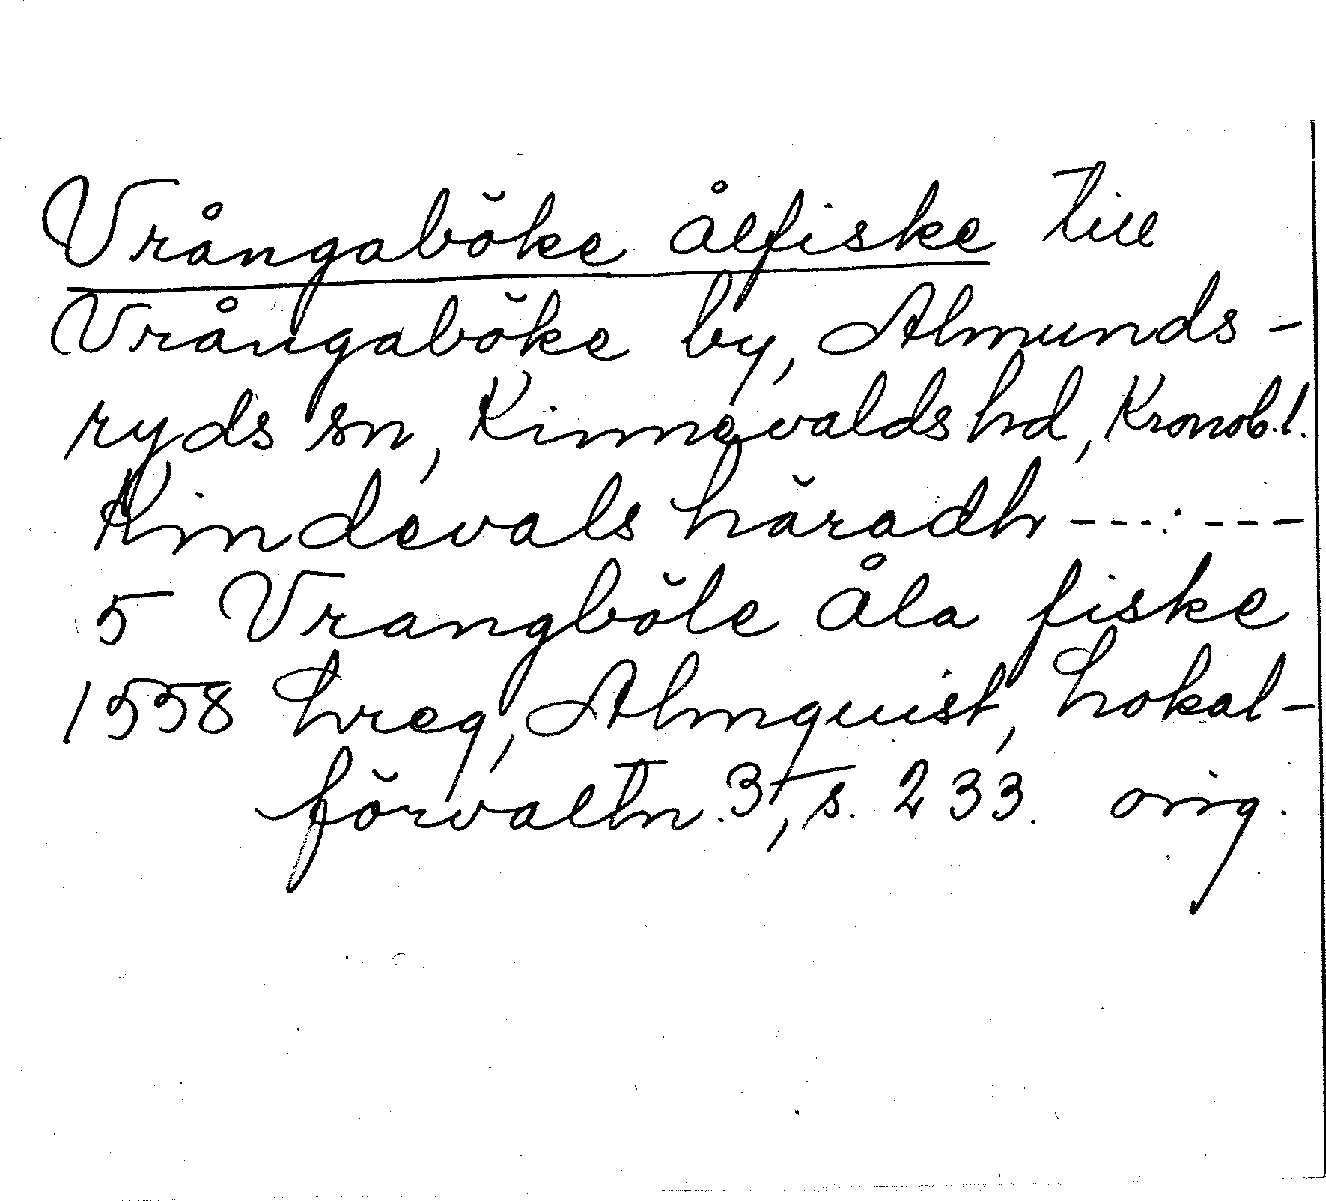 Vrångaböke ålfiske till
Vrångaböke by, Almunds-
ryds sn, Kinnevalds hd, Kronob. l.
Kindevals häradh ---:---
5 Vrangböle Åla fiske
1558 Lreg, Almquist, Lokal-
förvaltn. 3, s. 233. orig.